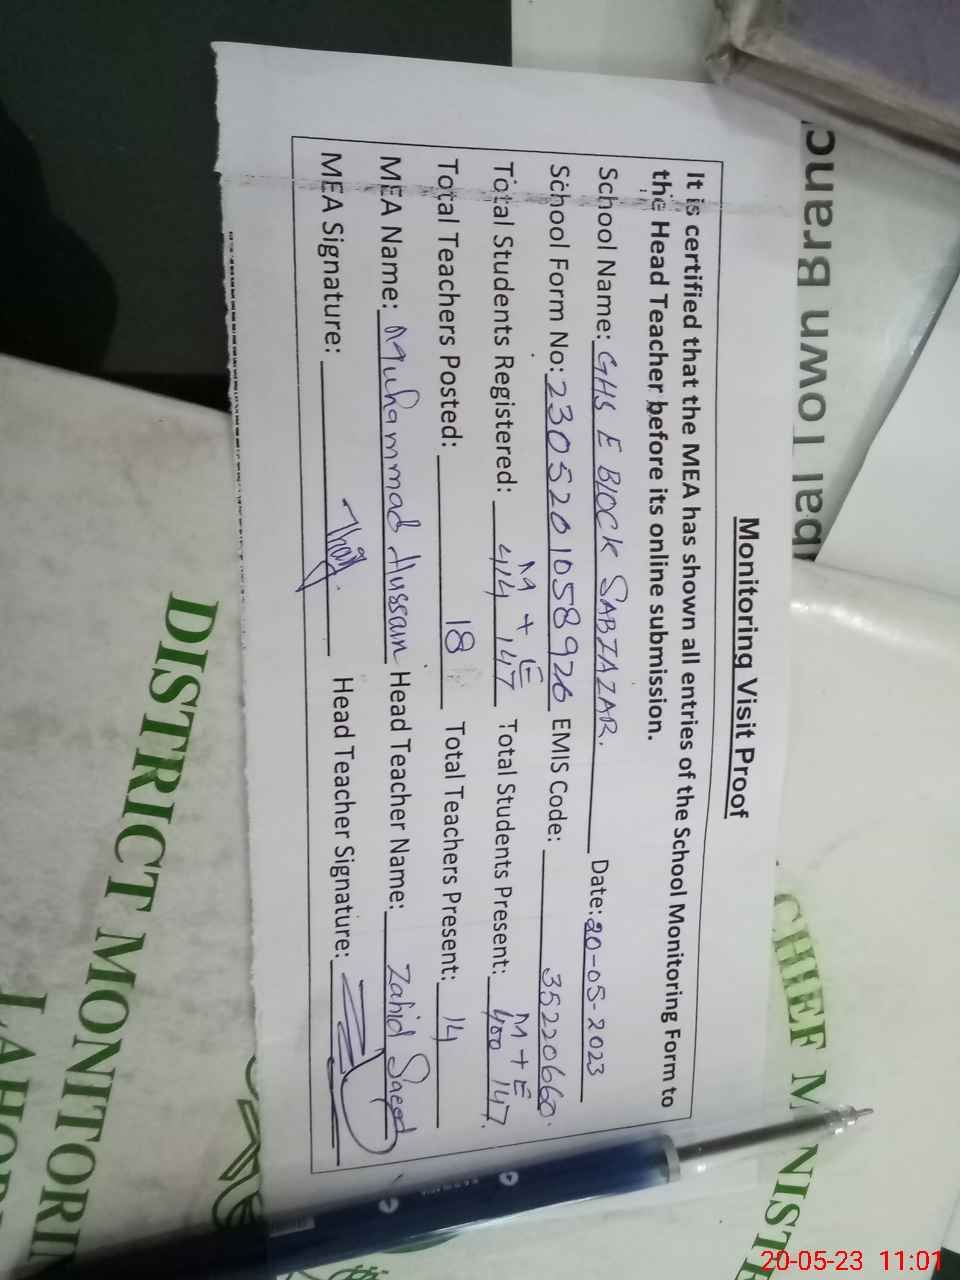 Monitoring Visit Proof
It is certified that the MEA has shown all entries of the School Monitoring Form to
the Head Teacher before its online submission.
School Name: GHS E BLOCK SABZAZAR. Date: 20-05-2023
School Form No: 2305201058926 EMIS Code: 35220660.
M + E M + E
Total Students Registered: 414 + 147 Total Students Present: 400 147.
Total Teachers Posted: 18 Total Teachers Present: 14
MEA Name: Muhammad Hussain Head Teacher Name: Zahid Saeed
MEA Signature: Head Teacher Signature:
Town Branc
CHIEF MINISTE
DISTRICT MONITORIN
LAHOR
20-05-23 11:01